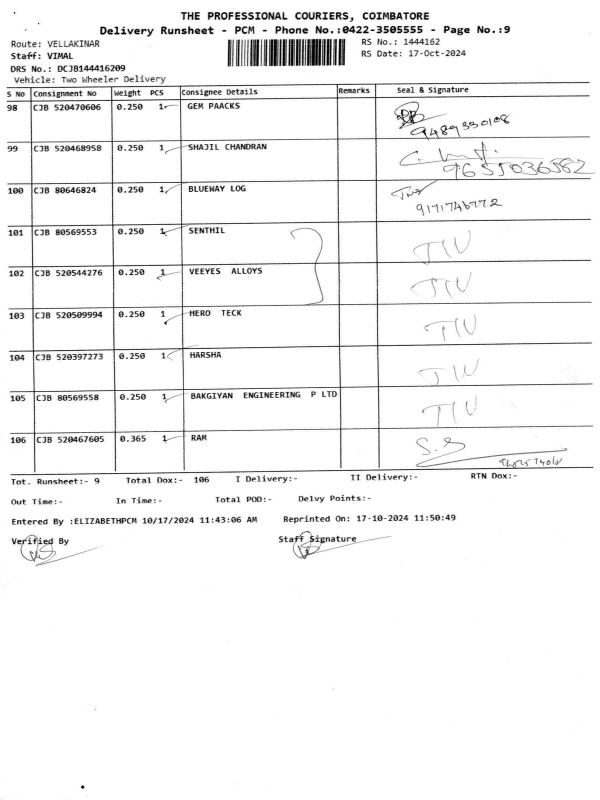 THE PROFESSIONAL COURIERS, COIMBATORE
Delivery Runsheet - PCM - Phone No.:0422-3505555 - Page No.:9
Route: VELLAKINAR RS No.: 1444162
Staff: VIMAL RS Date: 17-Oct-2024
DRS No.: DCJB144416209
Vehicle: Two Wheeler Delivery
S No Consignment No Weight PCS Consignee Details Remarks Seal & Signature
98 CJB 520470606 0.250 1 GEM PAACKS
9489330108
99 CJB 520468958 0.250 1 SHAJIL CHANDRAN
9655036582
100 CJB 80646824 0.250 1 BLUEWAY LOG
9171746772
101 CJB 80569553 0.250 1 SENTHIL
102 CJB 520544276 0.250 1 VEEYES ALLOYS
103 CJB 520509994 0.250 1 HERO TECK
104 CJB 520397273 0.250 1 HARSHA
105 CJB 80569558 0.250 1 BAKGIYAN ENGINEERING P LTD
106 CJB 520467605 0.365 1 RAM
Tot. Runsheet:- 9 Total Dox:- 106 I Delivery:- II Delivery:- RTN Dox:-
Out Time:- In Time:- Total POD:- Delvy Points:-
Entered By :ELIZABETHPCM 10/17/2024 11:43:06 AM Reprinted On: 17-10-2024 11:50:49
Verified By Staff Signature